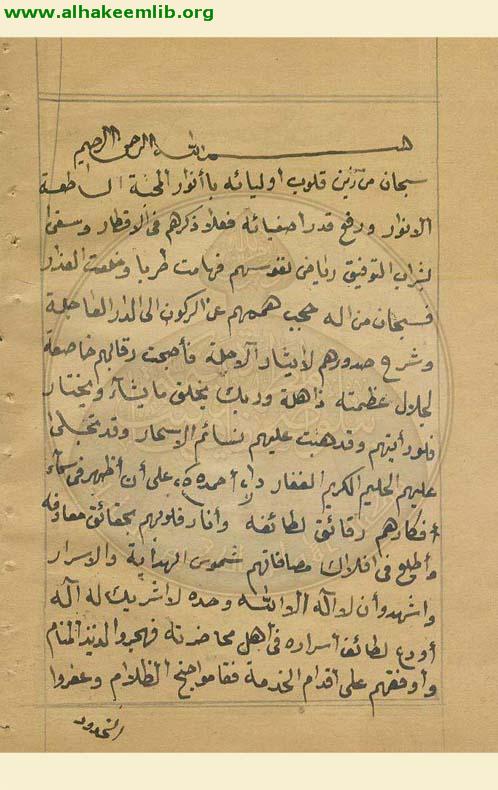 www.alhakeemlib.org
بسم الله الرحمن الرحيم
سبحان من زين قلوب اوليائه باأنوار المحبة الساطعة
الانوار ورفع قدر اصفيائه فعلا ذكرهم في الاقطار وسقى
بشراب التوفيق رياض نفوسهم فهامت طربا وخلعت العذار
فسبحان من اله حجب هممهم عن الركون الى الدار العاجلة
وشرح صدورهم لايثار الآجلة فأصبحت رقابهم خاضعة
لجلال عظمته ذاهلة وربك يخلق مايشآء ويختار
فلو رأيتهم وقد هبت عليهم نسائم الاسحار وقد تجلى
عليهم الحليم الكريم الغفار أحمده على أن أظهر في سمآء
أفكارهم رقائق لطائفه وأنار قلوبهم بحقائق معارفه
وأطلع في افلاك مصافاتهم شموس الهدآية والاسرار
واشهد وأن لا آله الا الله وحده لا شريك له آله
أودع لطائف أسراره في أهل محاضرته فهجروا لذيذ المنام
وأوقفهم على أقدام الخدمة فقاموا جنح الظلام وعفروا
الخدود